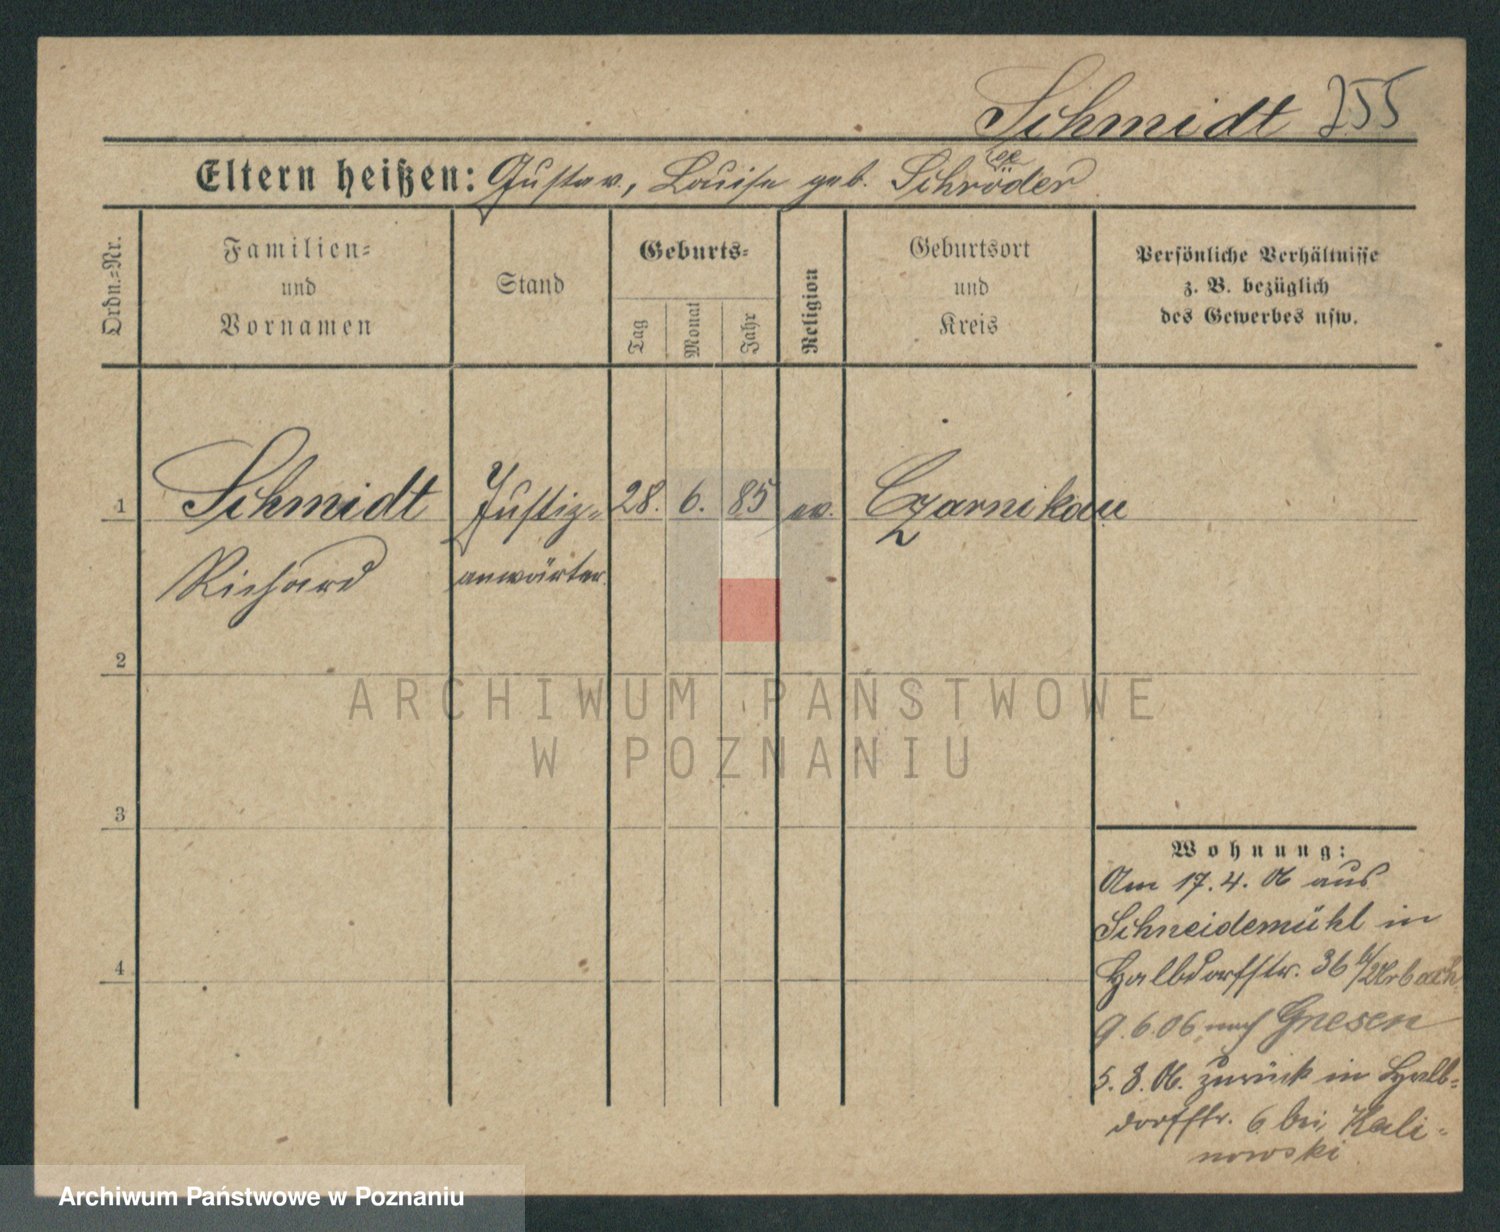 Schmidt 755
Eltern heißen: Gustav, Louise geb. Schröder
Ordn.=Nr.
Familien=
und
Vornamen
Stand
Geburts=
Tag
Monat
Jahr
Religion
Geburtsort
und
Kreis
Persönliche Verhältnisse
z. B. bezüglich
des Gewerbes usw.
1 Schmidt Justiz= 28. 6. 85 ev. Czarnikau
Richard anwärter.
2
3
4
Wohnung:
Am 17. 4. 06 aus
Schneidemühl in
Halbdorfstr. 36 b/Urbach
9. 6. 06 nach Gnesen
5. 8. 06. zurück in Halb=
dorfstr. 6 bei Kali=
nowski
ARCHIWUM PAŃSTWOWE
W POZNANIU
Archiwum Państwowe w Poznaniu